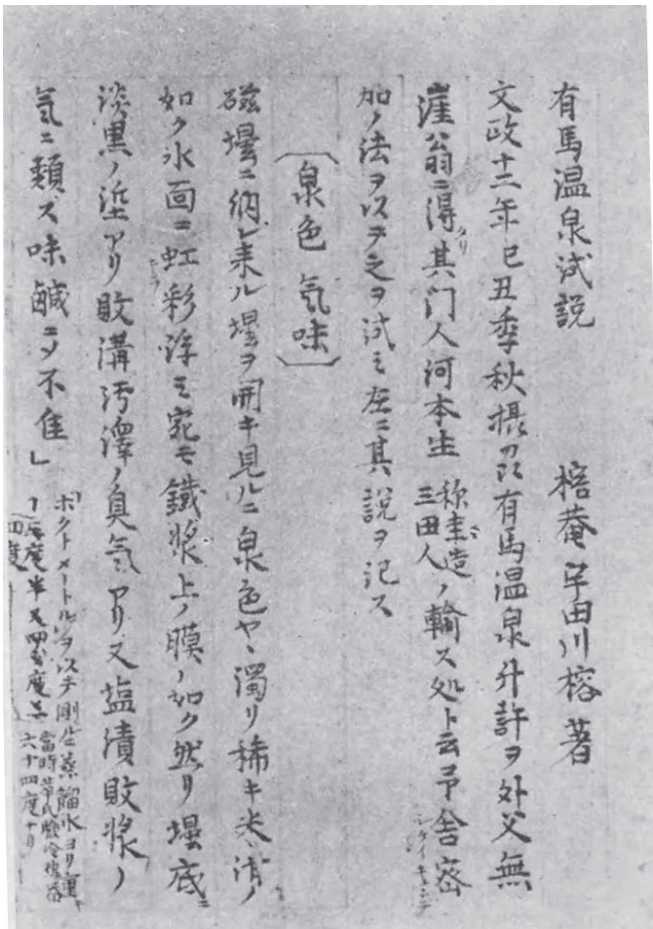 有馬温泉試説　榕菴宇田川榕著
文政十二年己丑季秋摂刕有馬温泉升許ヲ外父無
涯翁ニ得タリ其门人河本生 称圭造三田人 ノ輸ス処ト云予舎密
加ノ法ヲ以テ之ヲ試ミ左ニ其説ヲ記ス
〔泉色 気味〕
磁壜ニ納レ来ル壜ヲ開キ見ルニ泉色ヤヽ濁リ稀キ米泔ノ
如ク水面ニ虹彩浮ミ宛モ鐵漿上ノ膜ノ如ク然リ壜底ニ
淡黒ノ埿アリ敗溝汚澤ノ臭気アリ又塩漬敗漿ノ
気ニ類ス味鹹ニメ不佳」
ボクトメートルヲ以テ測ルニ蒸餾水ヨリ重キ
六十四度ナリ